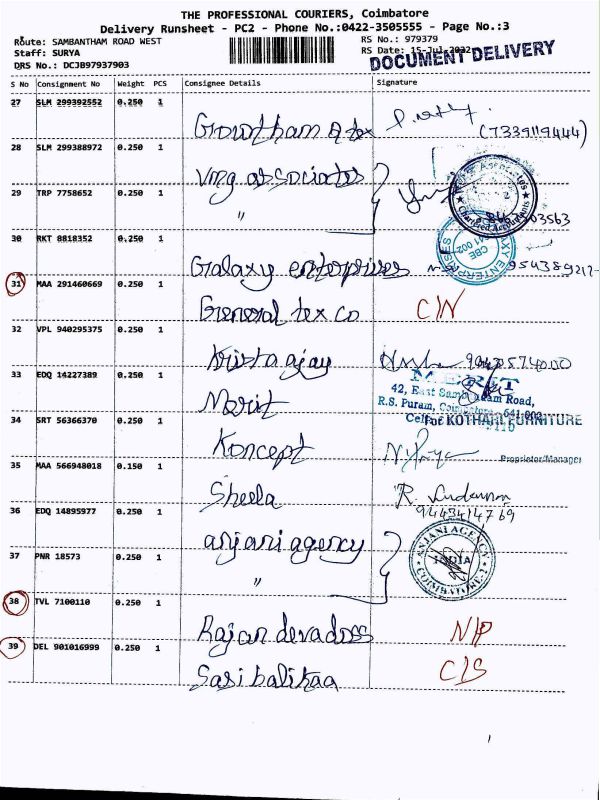 THE PROFESSIONAL COURIERS, Coimbatore
Delivery Runsheet - PC2 - Phone No.:0422-3505555 - Page No.:3
Route: SAMBANTHAM ROAD WEST
RS No.: 979379
Staff: SURYA
RS Date: 15-Jul-2022
DRS No.: DCJB97937903
DOCUMENT DELIVERY
S No Consignment No Weight PCS Consignee Details Signature
27 SLM 299392552 0.250 1
Growtham a tex (7339119444)
28 SLM 299388972 0.250 1
Vmg associates
29 TRP 7758652 0.250 1
"
Chartered Accountants
30 RKT 8818352 0.250 1
Galaxy enterprises
31 MAA 291460669 0.250 1
General tex co C/N
32 VPL 940295375 0.250 1
Krista ajay
33 EDQ 14227389 0.250 1
Merit
MERIT
42, East Road,
R.S. Puram,
34 SRT 56366370 0.250 1
For KOTHARI FURNITURE
Koncept
Proprietor/Manager
35 MAA 566948018 0.150 1
Sheela
36 EDQ 14895977 0.250 1
9443414769
anjani agency
ANJANI AGENCY
INDIA
COIMBATORE-2
37 PNR 18573 0.250 1
"
38 TVL 7100110 0.250 1
Rajan devadoss N/P
39 DEL 901016999 0.250 1
Sasi balikaa C/S